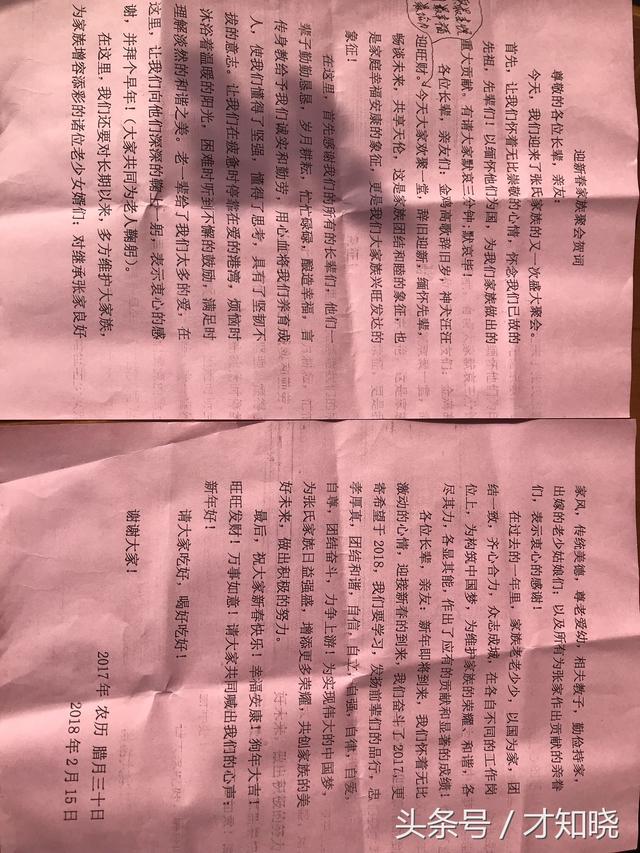 迎新春家族聚会贺词
尊敬的各位长辈、亲友:
今天,我们迎来了张氏家族的又一次盛大聚会。
首先,让我们怀着无比崇敬的心情,怀念我们已故的
先祖,先辈们!以缅怀他们为国,为我们家族做出的
重大贡献。有请大家默哀三分钟;默哀毕!
各位长辈,亲友们:金鸡高歌辞旧岁,神犬汪汪
迎旺财。今天大家欢聚一堂,辞旧迎新,缅怀先辈,
畅谈未来,共享天伦,这是家族团结和睦的象征,也
是家庭幸福安康的象征,更是我们大家族兴旺发达的
象征!
在这里,首先感谢我们的所有的长辈们,他们一
辈子勤勤恳恳,岁月耕耘,忙忙碌碌,酿造幸福,言
传身教给予我们诚实和勤劳,用心血将我们养育成
人,使我们懂得了坚强,懂得了思考,具有了坚韧不
拔的意志。让我们在疲惫时停靠在爱的港湾,烦恼时
沐浴着温暖的阳光,困难时听到不懈的鼓励,满足时
理解淡然的和谐之美。老一辈给了我们太多的爱,在
这里,让我们向他们深深的鞠上一躬,表示衷心的感
谢,并拜个早年!(大家共同为老人鞠躬)。
在这里,我们还要对长期以来,多方维护大家族,
为家族增容添彩的诸位老少女婿们;对继承张家良好
家风,传统美德,尊老爱幼,相夫教子,勤俭持家,
出嫁的老少姑娘们,以及所有为张家作出贡献的亲眷
们,表示衷心的感谢!
在过去的一年里,家族老老少少,以国为家,团
结一致,齐心合力,众志成城,在各自不同的工作岗
位上,为构筑中国梦,为维护家族的荣耀、和谐,各
尽其力,各显其能,作出了应有的贡献和显著的成绩!
各位长辈,亲友,新年即将到来,我们怀着无比
激动的心情,迎接新春的到来,我们奋斗了2017,更
寄希望于2018,我们要学习,发扬前辈们的品行,忠
孝厚真,团结和谐,自信,自立,自强,自律,自爱,
自尊,团结奋斗,力争上游!为实现伟大的中国梦,
为张氏家族日益强盛,增添更多荣耀,共创家族的美
好未来,做出积极的努力。
最后,祝大家新春快乐!幸福安康!狗年大吉!
旺旺发财!万事如意!请大家共同喊出我们的心声:
新年好!
请大家吃好,喝好吃好!
谢谢大家!
2017年 农历 腊月三十日
2018年2月15日
头条号 / 才知晓